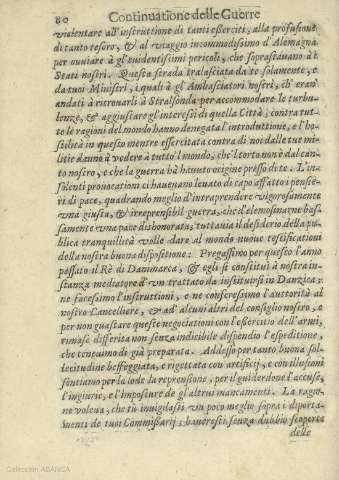 80 Continuatione delle Guerre
violentare all'instruttione di tanti esserciti, alla profusione
di tanto tesoro, & al viaggio incommodissimo d'Alemagna
per ouuiare à gl'euidentissimi pericoli, che soprastauano à
Stati nostri. Questa strada tralasciata da te solamente, e
da tuoi Ministri, i quali à gl'Ambasciatori nostri, ch'eran'
andati à ritrouarli à Stralsonda per accommodare le turbu-
lenze, & aggiustare gl'interessi di quella Città, contra tut-
te le ragioni del mondo hanno denegata l'introduttione, e l'ho-
stilità in questo mentre essercitata contra di noi dalle tue mi-
litie danno à vedere à tutto'l mondo, che'l torto non è dal can-
to nostro, e che la guerra hà hauuto origine presso di te. L'in-
solenti prouocationi ci haueuano leuato di capo affatto i pensie-
ri di pace, quando meglio d'intraprendere vigorosamente
vna giusta, & irreprensibil guerra, che d'elemosinare bas-
samente vna pace disbonorata; tuttauia il desiderio della pu-
blica tranquillità volle dare al mondo nuoue testificationi
della nostra buona dispositione: Pregassimo per questo l'anno
passato il Rè di Danimarca, & egli si constituì à nostra in-
stanza mediatore d'vn trattato da instituirsi in Danzica;
ne facessimo l'instruttioni, e ne conferessimo l'autorità al
nostro Cancelliere, & ad' alcuni altri del consiglio nostro, e
per non guastare queste negociationi con l'essercitio dell'armi,
rimase differita non senza indicibile dispendio l'espeditione,
che teneuamo di già preparata. Adesso per tanto buona sol-
lecitudine beffeggiata, e rigettata con artificij, e con illusioni
sentiamo per la lode la reprensione, per il guiderdone l'accuse,
l'ingiurie, e l'imposture de gl'altrui mancamenti. La ragio-
ne voleua, che tù inuigilassi vn poco meglio sopra i diporta-
menti de tuoi Commissarij; haueresti senza dubbio scoperto
delle
Colección ABANCA